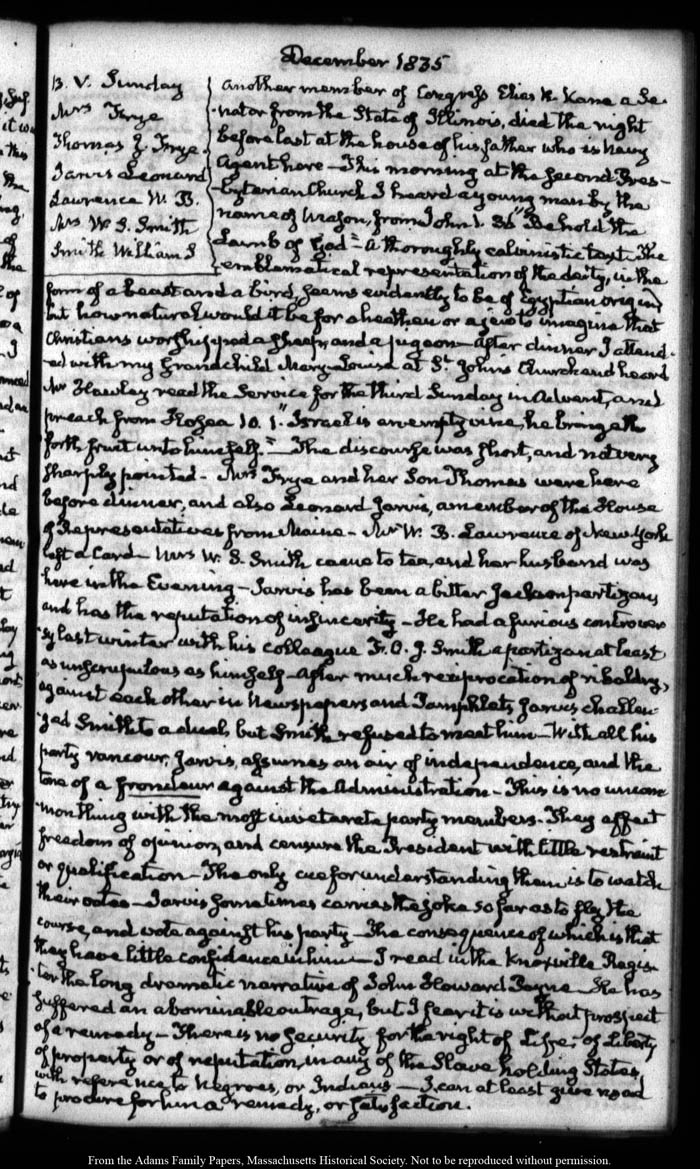 December 1835
B. V. Sunday
Mrs Frye
Thomas Frye
Jarvis Leonard
Lawrence W. B.
Mrs W. S. Smith
Smith William S
Another member of Congress Elias K. Kane a Se-
-nator from the State of Illinois, died the night
before last at the house of his father who is Navy
Agent here — This morning at the Second Pres-
-byterian Church I heard a young man by the
name of from John 1. "Behold the
Lamb of God" — A thoroughly calvinistic text. The
emblematical representation of the deity, in the
form of a beast and a bird, seems evidently to be of Egyptian origin,
but how natural would it be for a heathen or a jew to imagine that
Christians worshipped a sheep and a pigeon — After dinner I attend-
-ed with my Grandchild Mary-Louisa at St. John's Church and heard
Mr Hawley read the Service for the third Sunday in Advent, and
preach from Hosea 10. 1. "Israel is an empty vine, he bringeth
forth fruit unto himself." — The discourse was short, and not very
sharply pointed — Mrs Frye and her Son Thomas were here
before dinner, and also Leonard Jarvis, a member of the House
of Representatives from Maine — Mr W. B. Lawrence of New York
left a Card — Mrs W. S. Smith came to tea, and her husband was
here in the Evening — Jarvis has been a bitter Jackson partizan,
and has the reputation of insincerity — He had a furious controver-
-sy last winter with his colleague F. O. J. Smith a partizan at least
as unscrupulous as himself — After much reciprocation of ribaldry,
against each other in Newspapers and Pamphlets, Jarvis challen-
-ged Smith to a duel, but Smith refused to meet him — With all his
party rancour, Jarvis, assumes an air of independence, and the
tone of a frondeur against the Administration — This is no uncom-
-mon thing with the most inveterate party members. They affect
freedom of opinion, and censure the President with little restraint
or qualification — The only cue for understanding them is to watch
their votes — Jarvis sometimes carries the joke so far as to fly the
course, and vote against his party — The consequence of which is that
they have little confidence in him — I read in the Knoxville Regis-
-ter the long dramatic narrative of John Howard Payne — He has
suffered an abominable outrage, but I fear it is without prospect
of a remedy — There is no security for the right of Life, of Liberty
of property or of reputation, in any of the Slave holding States,
with reference to Negroes, or Indians — I can at least give no aid
to procure for him a remedy, or satisfaction.
From the Adams Family Papers, Massachusetts Historical Society. Not to be reproduced without permission.